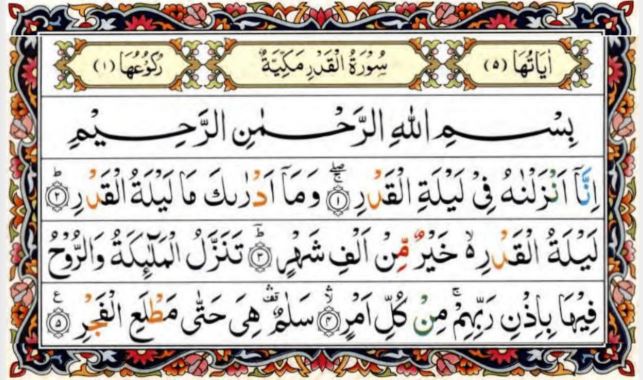 اٰيَاتُهَا (٥) سُوْرَةُ الْقَدْرِ مَكِّيَّةٌ رُكُوْعُهَا (١)
بِسْمِ اللّٰهِ الرَّحْمٰنِ الرَّحِيْمِ
اِنَّاۤ اَنْزَلْنٰهُ فِیْ لَیْلَةِ الْقَدْرِ ۚۖ ﴿١﴾ وَمَاۤ اَدْرٰىكَ مَا لَیْلَةُ الْقَدْرِ ؕ ﴿٢﴾
لَیْلَةُ الْقَدْرِ ۙ۬ خَیْرٌ مِّنْ اَلْفِ شَهْرٍ ؕ ﴿٣﴾ تَنَزَّلُ الْمَلٰٓىِٕكَةُ وَالرُّوْحُ
فِیْهَا بِاِذْنِ رَبِّهِمْ ۚ مِنْ كُلِّ اَمْرٍ ۙۛ ﴿٤﴾ سَلٰمٌ ۛ۫ هِیَ حَتّٰی مَطْلَعِ الْفَجْرِ ﴿٥﴾ ع